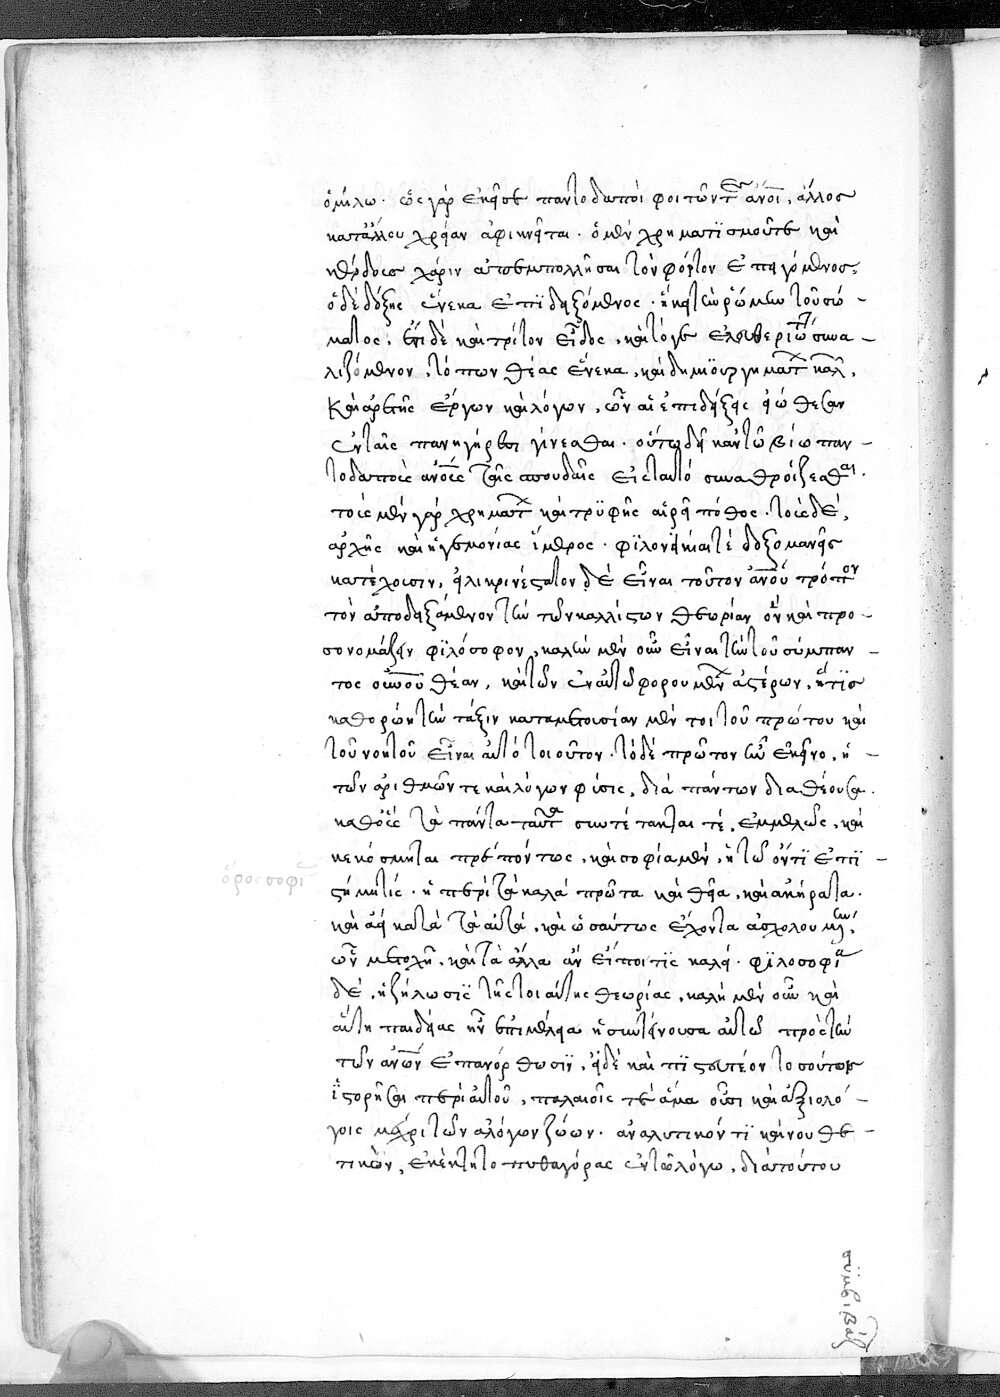 ὁμίλω. ὡς γὰρ ἐκεῖσε παντοδαποὶ φοιτῶντες ἄνοι, ἄλλος
κατἄλλου χρείαν ἀφικνεῖται. ὁ μὲν χρηματϊσμοῦτε καὶ
κέρδους χάριν ἀπεμπολλῆσαι τὸν φόρτον ἐπειγόμενος,
ὁ δὲ δόξης ἕνεκα ἐπϊδειξόμενος. ἥκει τὴν ῥώμην τοῦ σώ-
ματος. ἔστι δὲ καὶ τρίτον εἶδος, καὶ τόγε ἐλευθεριώτ συνα-
λιζόμενον, τόπων θέας ἕνεκα, καὶ δημϊουργημάτ καλ,
καὶ ἀρετῆς ἔργων καὶ λόγων, ὧν αἱ ἐπιδείξεις εἰώθεσαν
ἐν ταῖς πανηγύρεσι γίνεσθαι. οὕτω δὴ κἀν τῶ βίω παν-
τοδαποὺς ἀνους ταῖς σπουδαῖς εἰς ταυτὸ συναθροίζεσθαι.
τοὺς μὲν γὰρ χρημάτ καὶ τρϋφῆς αἱρεῖ πόθος. τοὺς δὲ,
ἀρχῆς καὶ ἡγεμονίας ἵμερος. φϊλονεικίαι τὲ δοξομανεῖς
κατέχουσιν, εἰλικρινέστατον δὲ εἶναι τοῦτον ἀνου τρόπον
τὸν ἀποδειξάμενον τὴν τῶν καλλίστων θεωρίαν ὃν καὶ προ-
σονομάζειν φϊλόσοφον, καλὴν μὲν οὖν εἶναι τὴν τοῦ σύμπαν-
τος οὐνου θέαν, καὶ τῶν ἐν αὐτῶ φορουμέν ἀστέρων, εἴ τϊς
καθορώη τὴν τάξιν κατα μετουσίαν μέν τοι τοῦ πρώτου καὶ
τοῦ νοητοῦ εἶναι αὐτὸ τοιοῦτον. τὸ δὲ πρῶτον ἦν ἐκεῖνο, ἡ
τῶν ἀριθμῶν τε καὶ λόγων φύσις, διὰ πάντων διαθέουσα.
καθοὓς τὰ πάντα ταῦτα συντέτακταί τὲ, ἐμμελῶς, καὶ
κεκόσμηται πρεπόντως, καὶ σοφία μὲν, ἡ τῶ ὄντϊ ἐπϊ-
στήμη τίς. ἡ περὶ τὰ καλὰ πρῶτα καὶ θεῖα, καὶ ἀκήρατα.
ὅρος σοφί
καὶ ἀεὶ κατὰ τὰ αὐτὰ, καὶ ὡσαύτως ἔχοντα ἀσχολουμέν,
ὧν μετοχῆ, καὶ τὰ ἄλλα ἂν εἴποι τϊς καλὰ. φϊλοσοφία
δὲ, ἡ ζήλωσϊς τῆς τοιαύτης θεωρίας, καλὴ μὲν οὖν καὶ
αὕτη παιδείας ἦν ἐπιμέλεια ἡ συντείνουσα αὐτῶ πρὸς τὴν
τῶν ἀνων ἐπανόρθωσϊν, εἰ δὲ καὶ πϊστευτέον τοσούτοις
ἱστορήσασι περὶ αὐτοῦ, παλαιοῖς τὲ ἅμα οὖσι καὶ ἀξιολό-
γοις μέχρι τῶν ἀλόγων ζώων. ἀναλυτικόν τϊ καὶ νουθε-
τικὸν, ἐκέκτητο πυθαγόρας ἐν τῶ λόγω, διὰ τούτου
συμβιβάζ